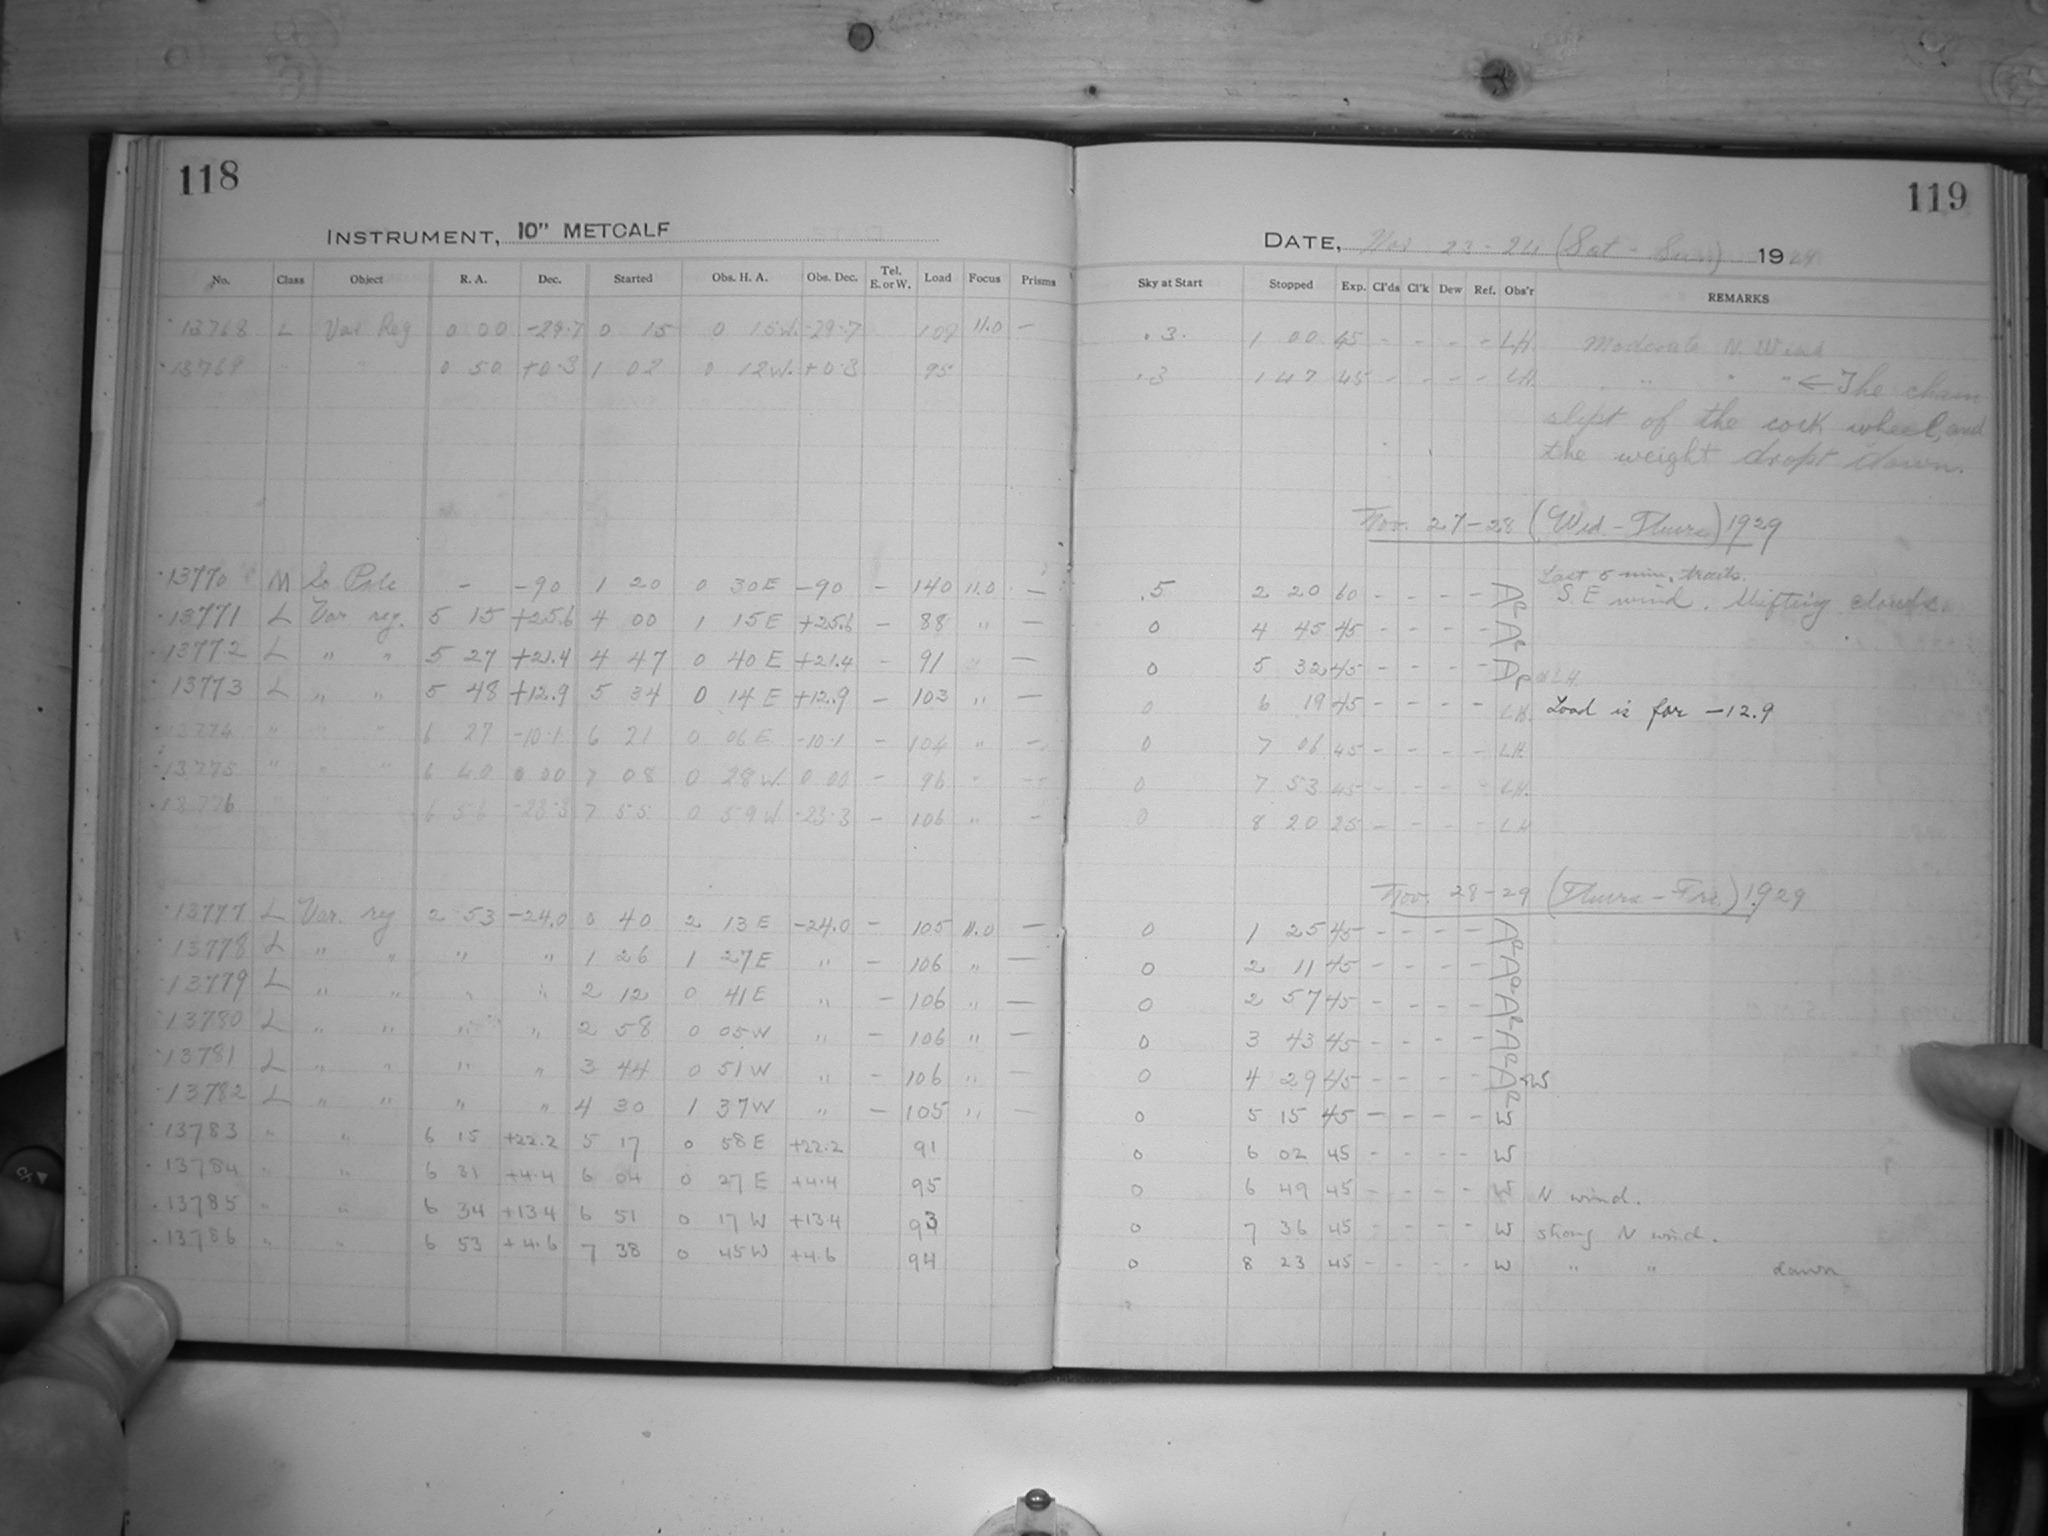 118
INSTRUMENT, 10" METCALF
No. Class Object R. A. Dec. Started Obs. H. A. Obs. Dec. Tel. E. or W. Load Focus Prisms
13768 L Var Reg 0 00 -29.7 0 15 0 15 W. -29.7 109 11.0 —
13769 " " 0 50 +0.3 1 02 0 12 W. +0.3 95
13770 M So Pole - -90 1 20 0 30 E -90 - 140 11.0 —
13771 L Var reg. 5 15 +25.6 4 00 1 15 E +25.6 - 88 " —
13772 L " " 5 27 +21.4 4 47 0 40 E +21.4 - 91 " —
13773 L " " 5 48 +12.9 5 34 0 14 E +12.9 - 103 " —
13774 " " " 6 27 -10.1 6 21 0 06 E -10.1 - 104 " —
13775 " " " 6 40 0.00 7 08 0 28 W. 0.00 - 96 " —
13776 6 56 -23.3 7 55 0 59 W -23.3 - 106 " —
13777 L Var. reg 2 53 -24.0 0 40 2 13 E -24.0 - 105 11.0 —
13778 L " " " " 1 26 1 27 E " - 106 " —
13779 L " " " " 2 12 0 41 E " - 106 " —
13780 L " " " " 2 58 0 05 W " - 106 " —
13781 L " " " " 3 44 0 51 W " - 106 " —
13782 L " " " " 4 30 1 37 W " - 105 " —
13783 " " 6 15 +22.2 5 17 0 58 E +22.2 91
13784 " " 6 31 +4.4 6 04 0 27 E +4.4 95
13785 " " 6 34 +13.4 6 51 0 17 W +13.4 93
13786 " " 6 53 +4.6 7 38 0 45 W +4.6 94
119
DATE, Nov 23-24 (Sat - Sun) 1929
Sky at Start Stopped Exp. Cl'ds Cl'k Dew Ref. Obs'r REMARKS
.3 1 00 45 - - - - LH. Moderate N. Wind
.3 1 47 45 - - - - LH. " " " ← The chain
slipt of the cock wheel, and
the weight dropt down.
Nov. 27-28 (Wed - Thurs) 1929
Last 5 min. trails.
.5 2 20 60 - - - - AP S.E wind. Shifting clouds.
0 4 45 45 - - - - AP
0 5 32 45 - - - - DP LH
0 6 19 45 - - - - LH. Load is for -12.9
0 7 06 45 - - - - LH.
0 7 53 45 - - - - LH.
0 8 20 25 - - - - LH
Nov. 28-29 (Thurs - Fri.) 1929
0 1 25 45 - - - - AP
0 2 11 45 - - - - AP
0 2 57 45 - - - - AP
0 3 43 45 - - - - AP
0 4 29 45 - - - - AP W
0 5 15 45 - - - - W
0 6 02 45 - - - - W
0 6 49 45 - - - - W N wind.
0 7 36 45 - - - - W strong N wind.
0 8 23 45 - - - - W " " dawn